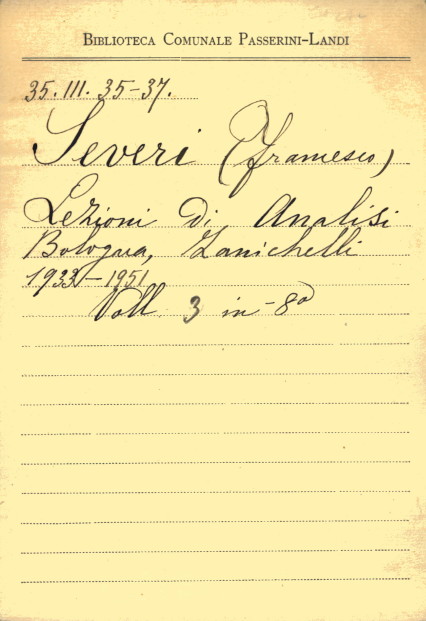 BIBLIOTECA COMUNALE PASSERINI-LANDI
35. III. 35-37.
Severi (Francesco)
Lezioni di Analisi
Bologna, Zanichelli
1933-1951
Voll. 3 in-8º